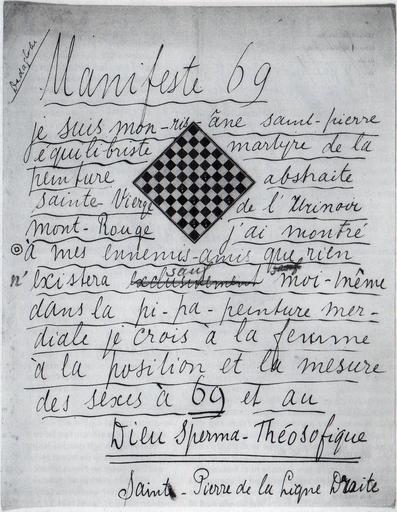 Manifeste 69
je suis mon-ris-âne saint-pierre
équilibriste martyre de la
peinture abstraite
sainte-Vierge de l'Urinoir
Mont-Rouge j'ai montré
à mes ennemis-amis que rien
n'existera exclusivement sauf moi-même
dans la pi-pa-peinture mer-
diale je crois à la femme
à la position et la mesure
des sexes à 69 et au
Dieu Sperma-Théosofique
Saint-Pierre de la Ligne Draite